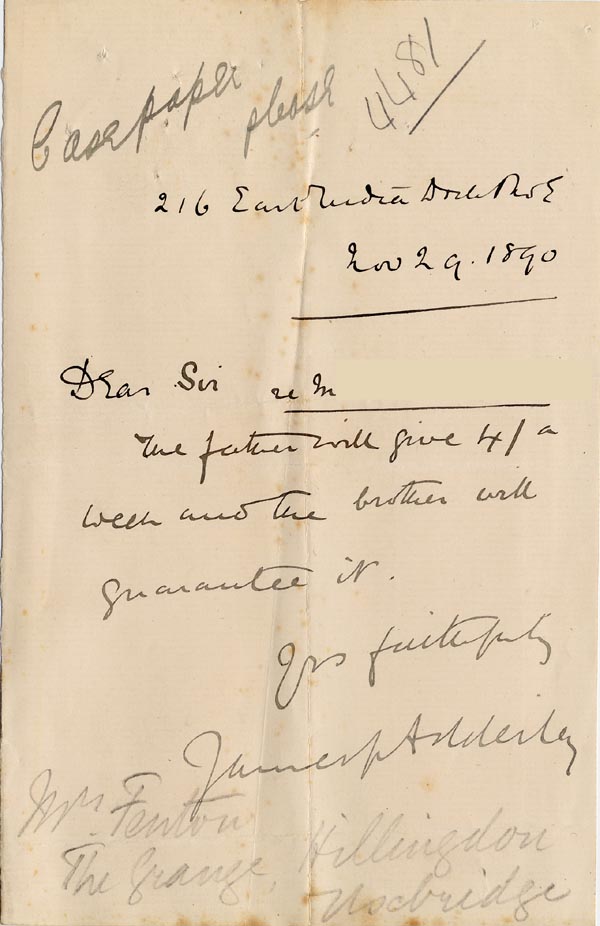 Case paper please 4481
216 East India Dock Rd E
Nov 29. 1890
Dear Sir re M
The father will give 4/ a
week and the brother will
guarantee it.
Yrs faithfully
James Adderley
Mrs. Fenton
The Grange, Hillingdon
Uxbridge